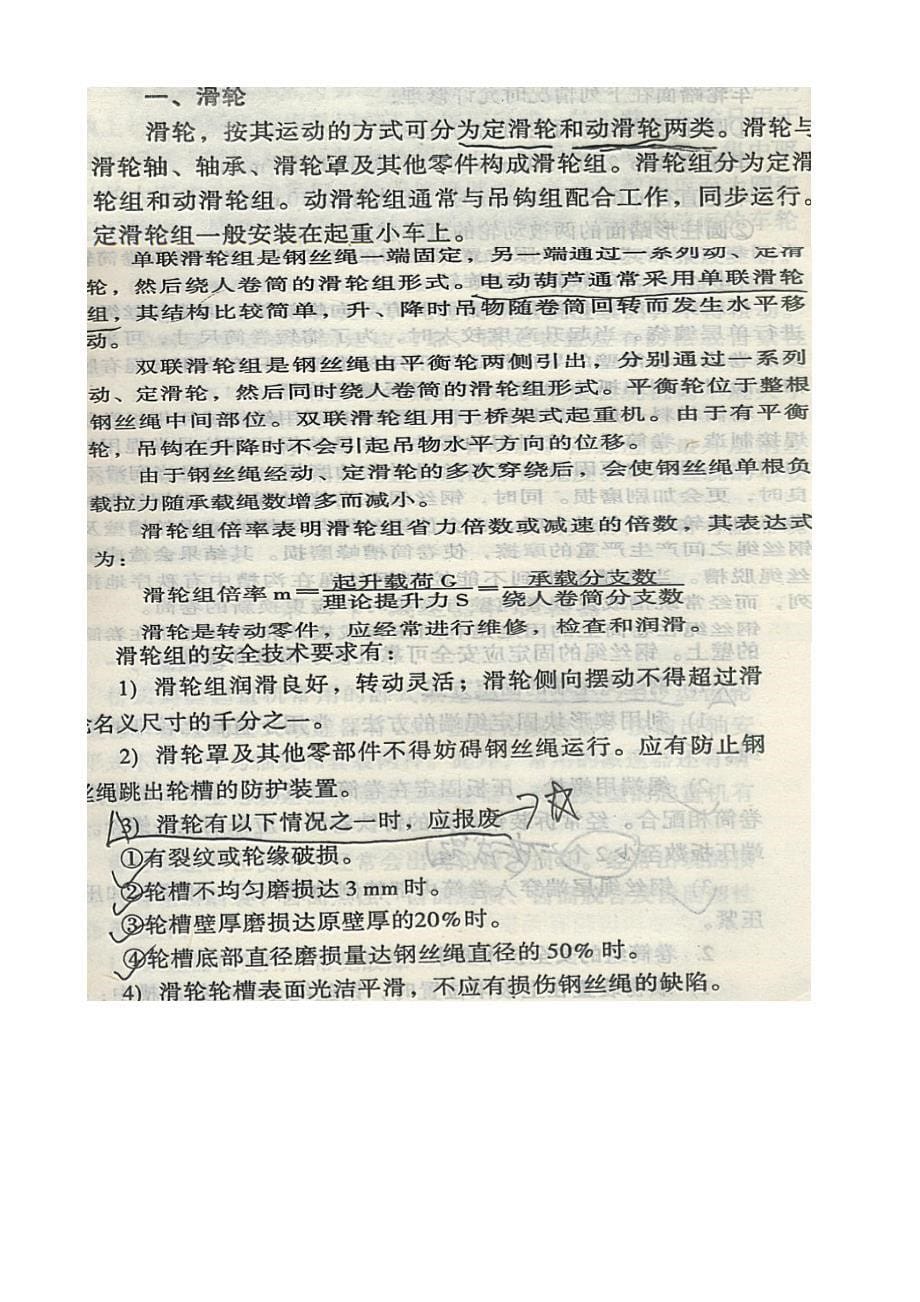 一、滑轮
滑轮，按其运动的方式可分为定滑轮和动滑轮两类。滑轮与
滑轮轴、轴承、滑轮罩及其他零件构成滑轮组。滑轮组分为定滑
轮组和动滑轮组。动滑轮组通常与吊钩组配合工作，同步运行。
定滑轮组一般安装在起重小车上。
单联滑轮组是钢丝绳一端固定，另一端通过一系列动、定滑
轮，然后绕人卷筒的滑轮组形式。电动葫芦通常采用单联滑轮
组，其结构比较简单，升、降时吊物随卷筒回转而发生水平移
动。
双联滑轮组是钢丝绳由平衡轮两侧引出，分别通过一系列
动、定滑轮，然后同时绕人卷筒的滑轮组形式。平衡轮位于整根
钢丝绳中间部位。双联滑轮组用于桥架式起重机。由于有平衡
轮，吊钩在升降时不会引起吊物水平方向的位移。
由于钢丝绳经动、定滑轮的多次穿绕后，会使钢丝绳单根负
载拉力随承载绳数增多而减小。
滑轮组倍率表明滑轮组省力倍数或减速的倍数，其表达式
为：
滑轮组倍率 m＝起升载荷 G/理论提升力 S＝承载分支数/绕人卷筒分支数
滑轮是转动零件，应经常进行维修，检查和润滑。
滑轮组的安全技术要求有：
1）滑轮组润滑良好，转动灵活；滑轮侧向摆动不得超过滑
名义尺寸的千分之一。
2）滑轮罩及其他零部件不得妨碍钢丝绳运行。应有防止钢
绳跳出轮槽的防护装置。
3）滑轮有以下情况之一时，应报废
①有裂纹或轮缘破损。
②轮槽不均匀磨损达 3mm时。
③轮槽壁厚磨损达原壁厚的20%时。
④轮槽底部直径磨损量达钢丝绳直径的 50% 时。
4）滑轮轮槽表面光洁平滑，不应有损伤钢丝绳的缺陷。